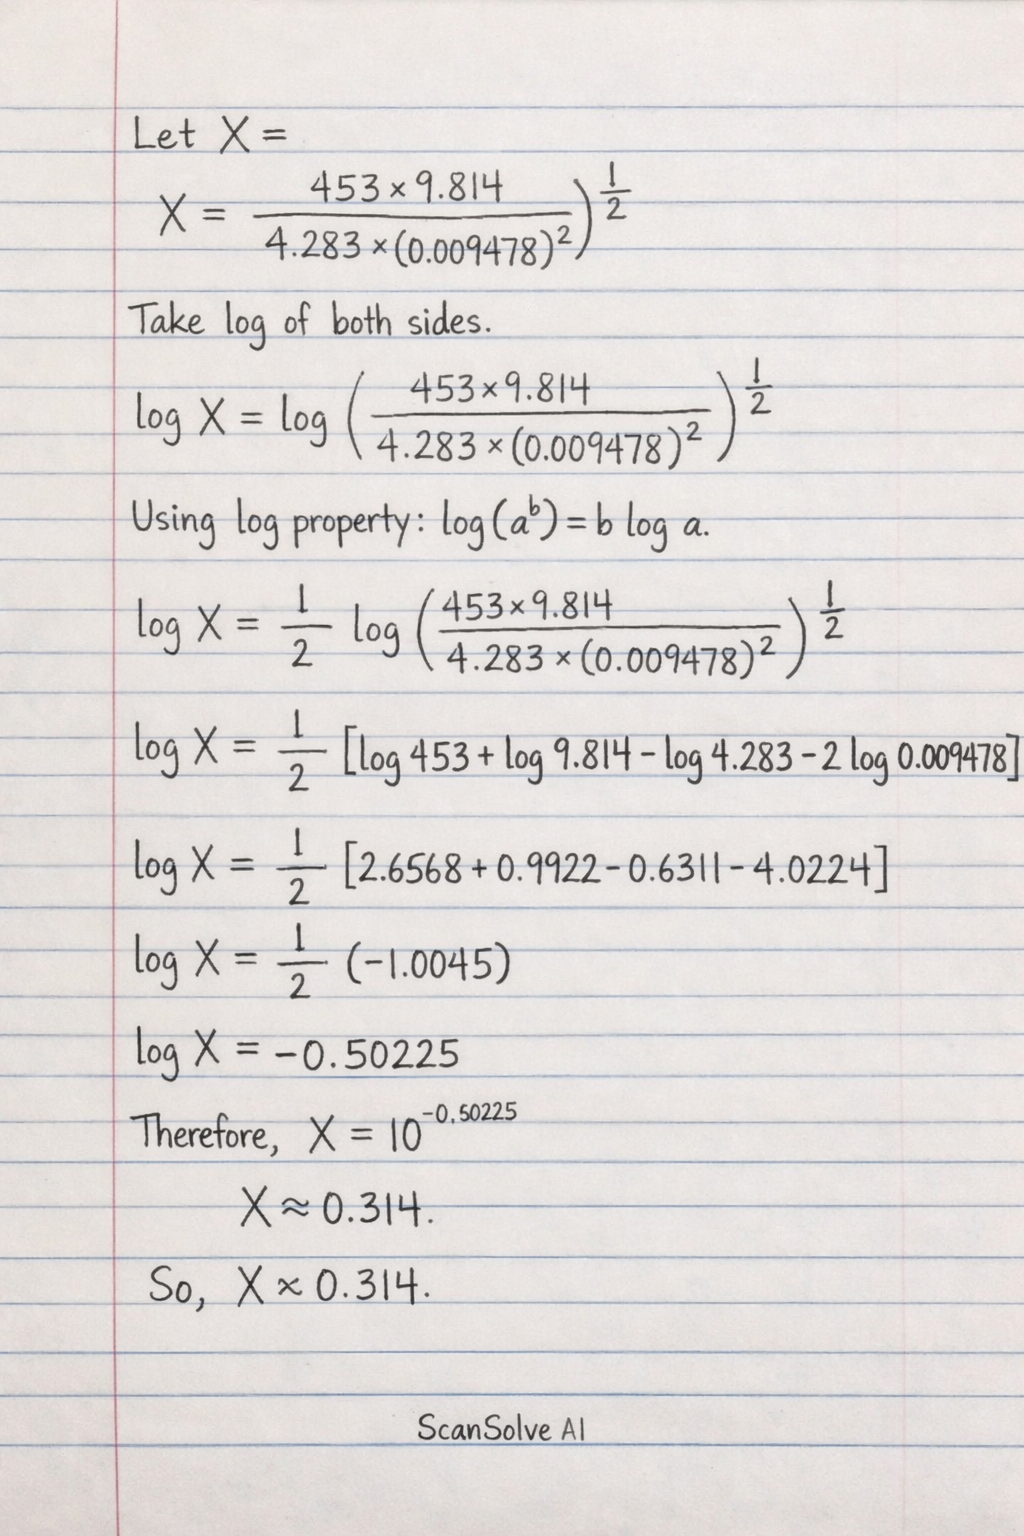 Let X =
X = 453 × 9.814 / 4.283 × (0.009478)²)^1/2
Take log of both sides.
log X = log (453 × 9.814 / 4.283 × (0.009478)²)^1/2
Using log property: log(a^b) = b log a.
log X = 1/2 log (453 × 9.814 / 4.283 × (0.009478)²)^1/2
log X = 1/2 [log 453 + log 9.814 − log 4.283 − 2 log 0.009478]
log X = 1/2 [2.6568 + 0.9922 − 0.6311 − 4.0224]
log X = 1/2 (−1.0045)
log X = −0.50225
Therefore, X = 10^−0.50225
X ≈ 0.314.
So, X ≈ 0.314.
ScanSolve AI